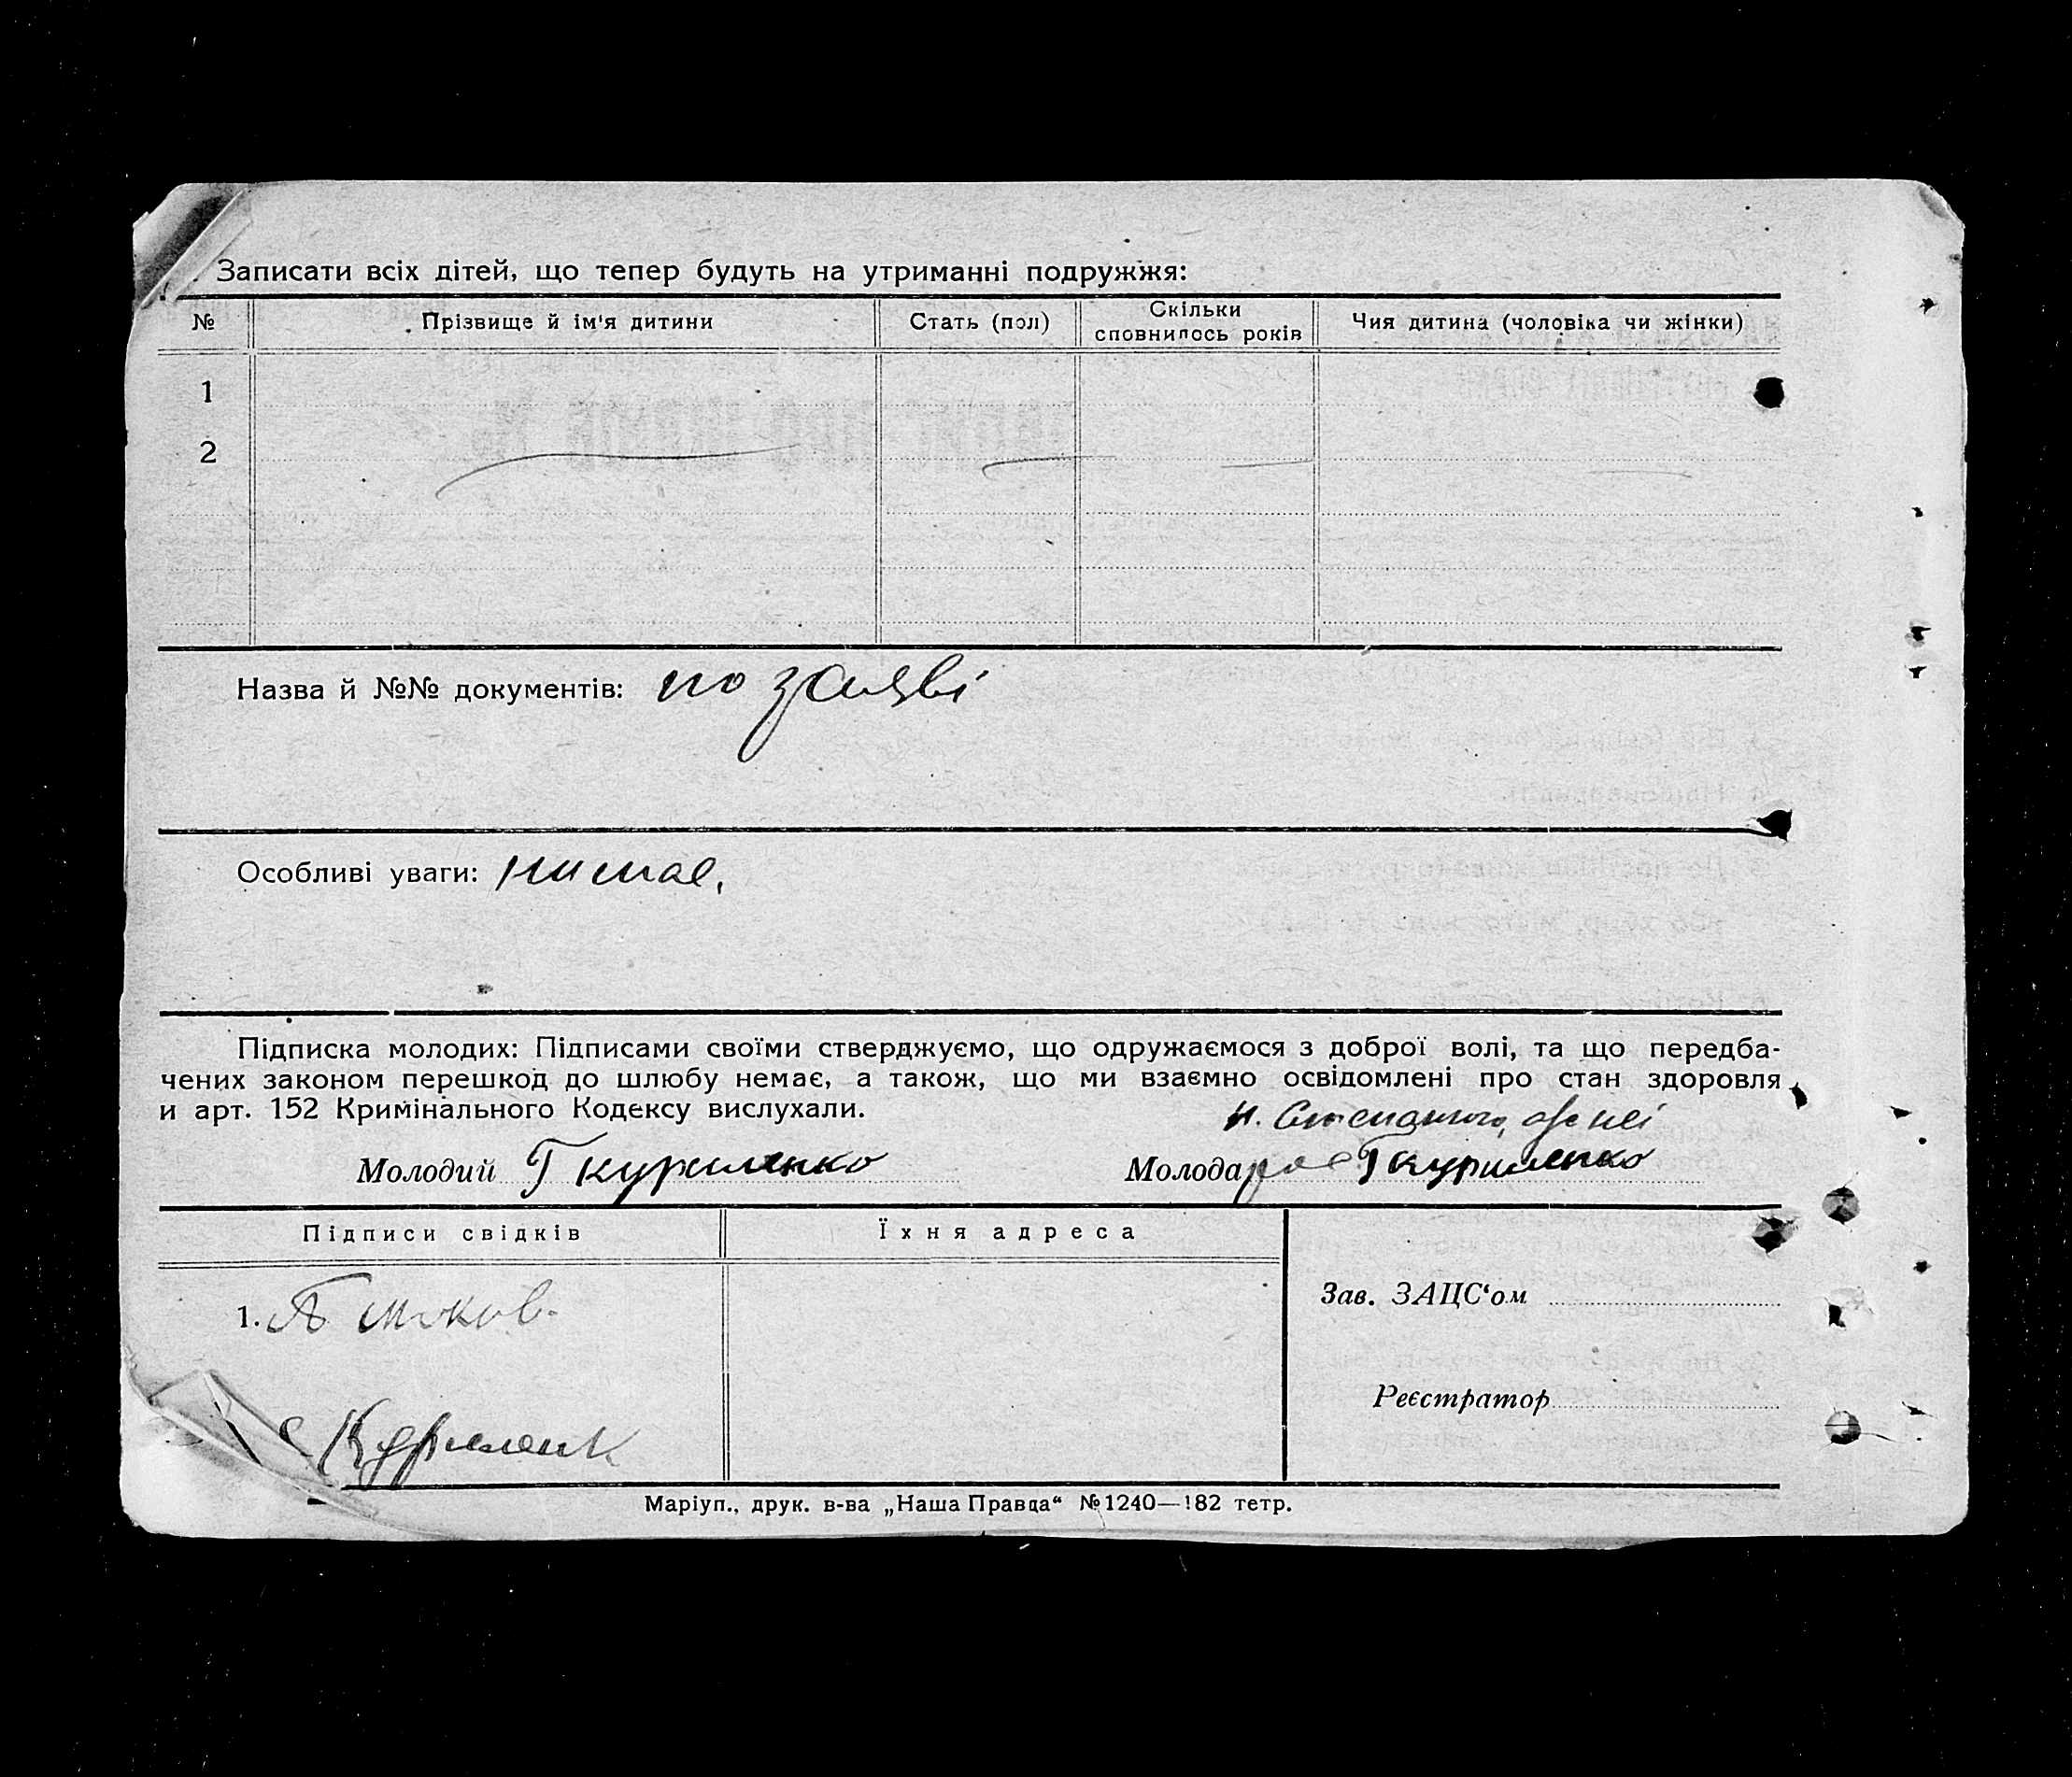 Записати всіх дітей, що тепер будуть на утриманні подружжя:
№ Прізвище й ім'я дитини Стать (пол) Скільки сповнилось років Чия дитина (чоловіка чи жінки)
1
2
Назва й №№ документів: по заяві
Особливі уваги: нимає,
Підписка молодих: Підписами своїми стверджуємо, що одружаємося з доброї волі, та що передба-
чених законом перешкод до шлюбу немає, а також, що ми взаємно освідомлені про стан здоровля
и арт. 152 Кримінального Кодексу вислухали.
Молодий Г Куриленко Молода Г Куриленко
Підписи свідків Їхня адреса
Зав. ЗАЦС'ом
1.
Реєстратор
Куриленк
Маріуп., друк. в-ва „Наша Правда“ №1240—182 тетр.